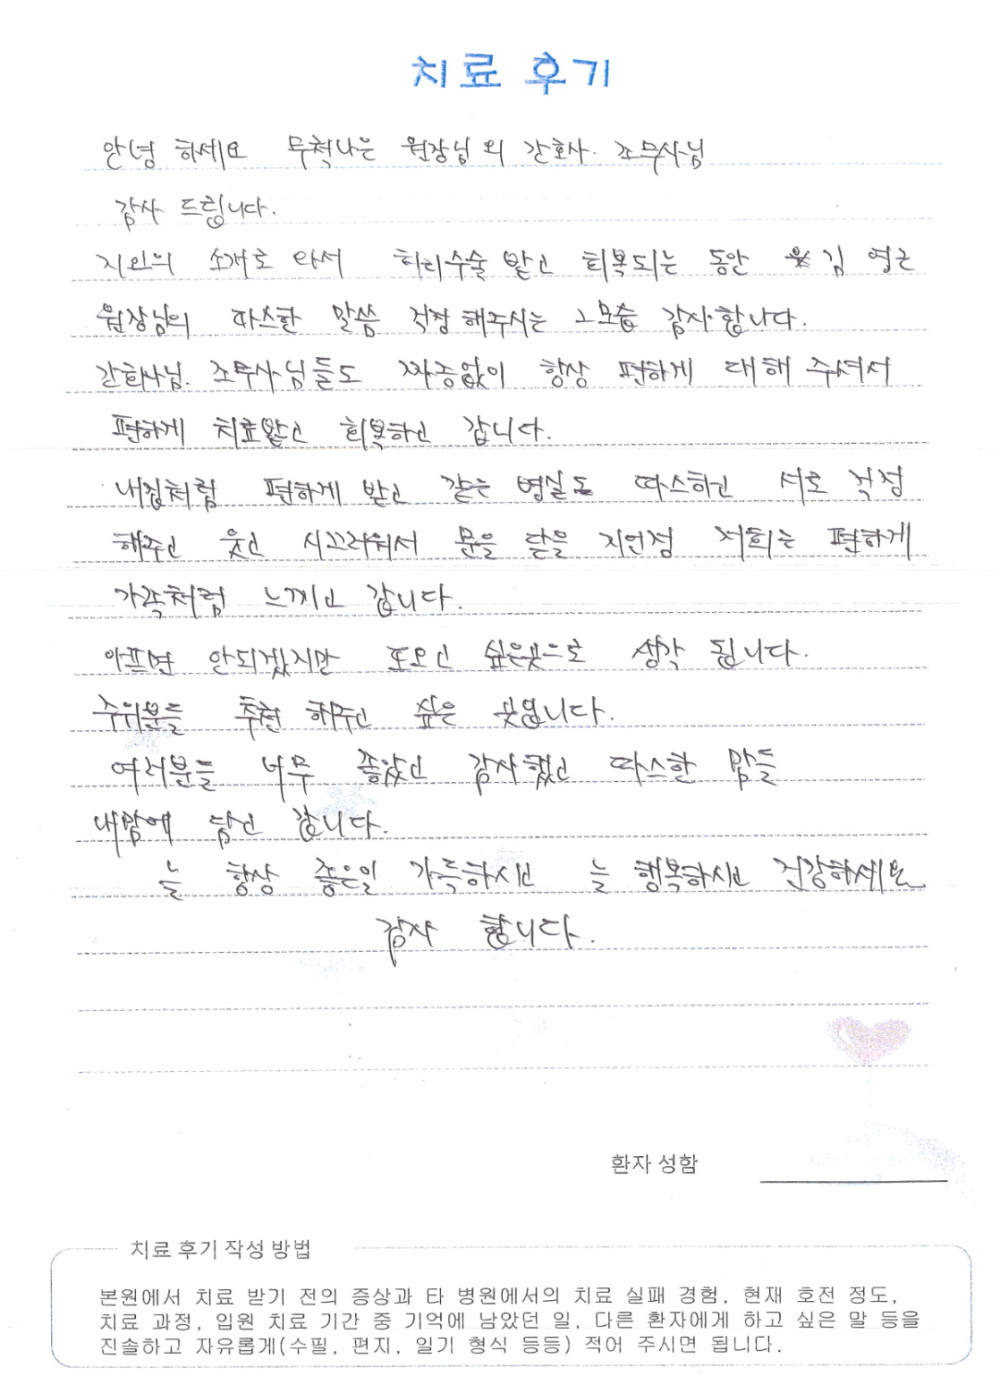 치료 후기
안녕 하세요 무척나은 원장님외 간호사. 조무사님
감사 드립니다.
지인의 소개로 와서 허리수술 받고 회복되는 동안 김 영근
원장님의 따스한 말씀 걱정해주시는 그모습 감사합니다.
간호사님. 조무사님들도 짜증없이 항상 편하게 대해 주셔서
편하게 치료받고 회복하고 갑니다.
내집처럼 편하게 받고 같은 병실도 따스하고 서로 걱정
해주고 웃고 시끄러워서 문을 닫을 지언정 저희는 편하게
가족처럼 느끼고 갑니다.
아프면 안되겠지만 또오고 싶은곳으로 생각 됩니다.
주위분들 추천 해주고 싶은 곳입니다.
여러분들 너무 좋았고 감사했고 따스한 맘들
내맘에 담고 갑니다.
늘 항상 좋은일 가득하시고 늘 행복하시고 건강하세요
감사 합니다.
환자 성함
치료 후기 작성 방법
본원에서 치료 받기 전의 증상과 타 병원에서의 치료 실패 경험, 현재 호전 정도,
치료 과정, 입원 치료 기간 중 기억에 남았던 일, 다른 환자에게 하고 싶은 말 등을
진솔하고 자유롭게(수필, 편지, 일기 형식 등등) 적어 주시면 됩니다.